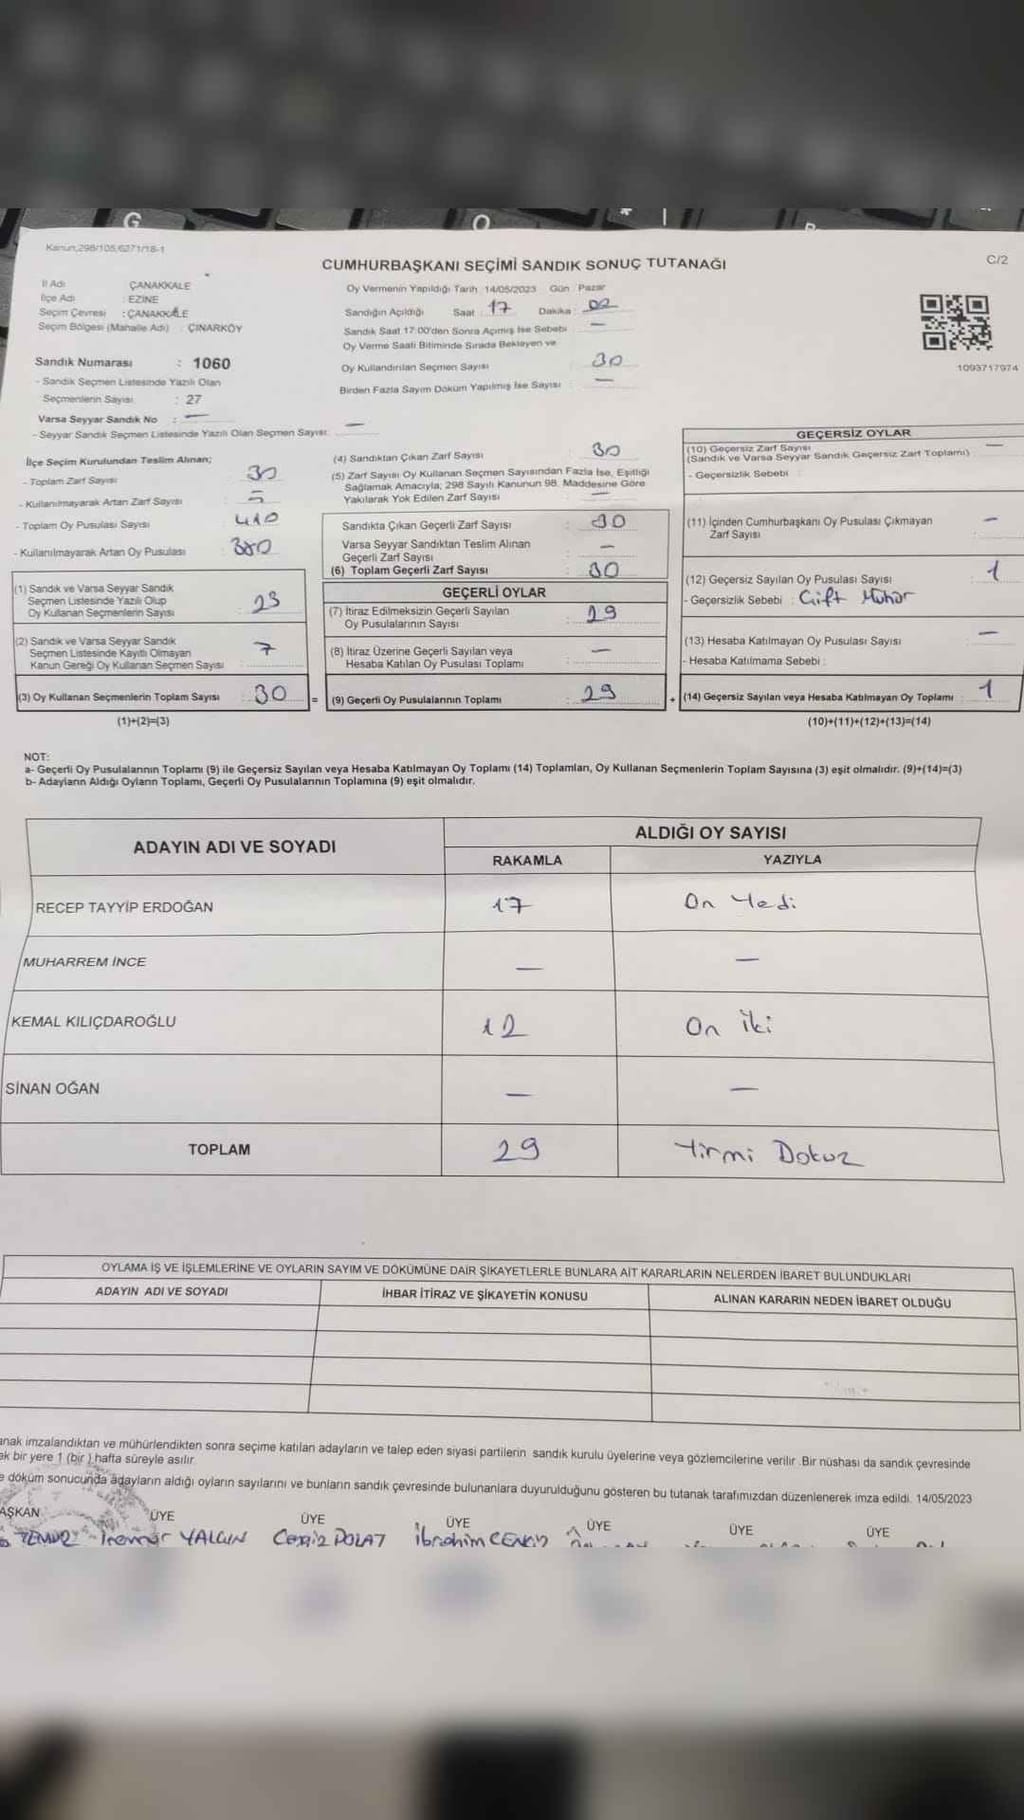 Kanun,298/105,6271/18-1
C/2
CUMHURBAŞKANI SEÇİMİ SANDIK SONUÇ TUTANAĞI
İl Adı ÇANAKKALE
İlçe Adı : EZİNE
Seçim Çevresi : ÇANAKKALE
Seçim Bölgesi (Mahalle Adı) : ÇINARKÖY
Oy Vermenin Yapıldığı Tarih 14/05/2023 Gün : Pazar
Sandığın Açıldığı Saat 17 Dakika : 02
Sandık Saat 17:00'den Sonra Açmış İse Sebebi —
Oy Verme Saati Bitiminde Sırada Bekleyen ve
Oy Kullandırılan Seçmen Sayısı : 30
Birden Fazla Sayım Döküm Yapılmış İse Sayısı : —
1093717974
Sandık Numarası : 1060
- Sandık Seçmen Listesinde Yazılı Olan
Seçmenlerin Sayısı : 27
Varsa Seyyar Sandık No : —
- Seyyar Sandık Seçmen Listesinde Yazılı Olan Seçmen Sayısı: —
İlçe Seçim Kurulundan Teslim Alınan;
- Toplam Zarf Sayısı 30
- Kullanılmayarak Artan Zarf Sayısı
- Toplam Oy Pusulası Sayısı 410
- Kullanılmayarak Artan Oy Pusulası 380
(1) Sandık ve Varsa Seyyar Sandık
Seçmen Listesinde Yazılı Olup
Oy Kullanan Seçmenlerin Sayısı : 23
(2) Sandık ve Varsa Seyyar Sandık
Seçmen Listesinde Kayıtlı Olmayan
Kanun Gereği Oy Kullanan Seçmen Sayısı : 7
(3) Oy Kullanan Seçmenlerin Toplam Sayısı : 30 =
(1)+(2)=(3)
(4) Sandıktan Çıkan Zarf Sayısı : 30
(5) Zarf Sayısı Oy Kullanan Seçmen Sayısından Fazla İse, Eşitliği
Sağlamak Amacıyla; 298 Sayılı Kanunun 98. Maddesine Göre
Yakılarak Yok Edilen Zarf Sayısı —
Sandıkta Çıkan Geçerli Zarf Sayısı : 30
Varsa Seyyar Sandıktan Teslim Alınan
Geçerli Zarf Sayısı : —
(6) Toplam Geçerli Zarf Sayısı : 30
GEÇERLİ OYLAR
(7) İtiraz Edilmeksizin Geçerli Sayılan
Oy Pusulalarının Sayısı : 29
(8) İtiraz Üzerine Geçerli Sayılan veya
Hesaba Katılan Oy Pusulası Toplamı : —
(9) Geçerli Oy Pusulalarının Toplamı : 29 +
GEÇERSİZ OYLAR
(10) Geçersiz Zarf Sayısı —
(Sandık ve Varsa Seyyar Sandık Geçersiz Zarf Toplamı)
- Geçersizlik Sebebi :
(11) İçinden Cumhurbaşkanı Oy Pusulası Çıkmayan
Zarf Sayısı —
(12) Geçersiz Sayılan Oy Pusulası Sayısı 1
- Geçersizlik Sebebi : Çift Mühür
(13) Hesaba Katılmayan Oy Pusulası Sayısı —
- Hesaba Katılmama Sebebi :
(14) Geçersiz Sayılan veya Hesaba Katılmayan Oy Toplamı : 1
(10)+(11)+(12)+(13)=(14)
NOT:
a- Geçerli Oy Pusulalarının Toplamı (9) ile Geçersiz Sayılan veya Hesaba Katılmayan Oy Toplamı (14) Toplamları, Oy Kullanan Seçmenlerin Toplam Sayısına (3) eşit olmalıdır. (9)+(14)=(3)
b- Adayların Aldığı Oyların Toplamı, Geçerli Oy Pusulalarının Toplamına (9) eşit olmalıdır.
ADAYIN ADI VE SOYADI ALDIĞI OY SAYISI
RAKAMLA YAZIYLA
RECEP TAYYİP ERDOĞAN 17 On Yedi
MUHARREM İNCE — —
KEMAL KILIÇDAROĞLU 12 On iki
SİNAN OĞAN — —
TOPLAM 29 Yirmi Dokuz
OYLAMA İŞ VE İŞLEMLERİNE VE OYLARIN SAYIM VE DÖKÜMÜNE DAİR ŞİKAYETLERLE BUNLARA AİT KARARLARIN NELERDEN İBARET BULUNDUKLARI
ADAYIN ADI VE SOYADI İHBAR İTİRAZ VE ŞİKAYETİN KONUSU ALINAN KARARIN NEDEN İBARET OLDUĞU
anak imzalandıktan ve mühürlendikten sonra seçime katılan adayların ve talep eden siyasi partilerin sandık kurulu üyelerine veya gözlemcilerine verilir .Bir nüshası da sandık çevresinde
ek bir yere 1 (bir ) hafta süreyle asılır.
e döküm sonucunda adayların aldığı oyların sayılarını ve bunların sandık çevresinde bulunanlara duyurulduğunu gösteren bu tutanak tarafımızdan düzenlenerek imza edildi. 14/05/2023
AŞKAN ÜYE ÜYE ÜYE ÜYE ÜYE ÜYE
YALÇIN Cengiz POLAT İbrahim CENGİZ